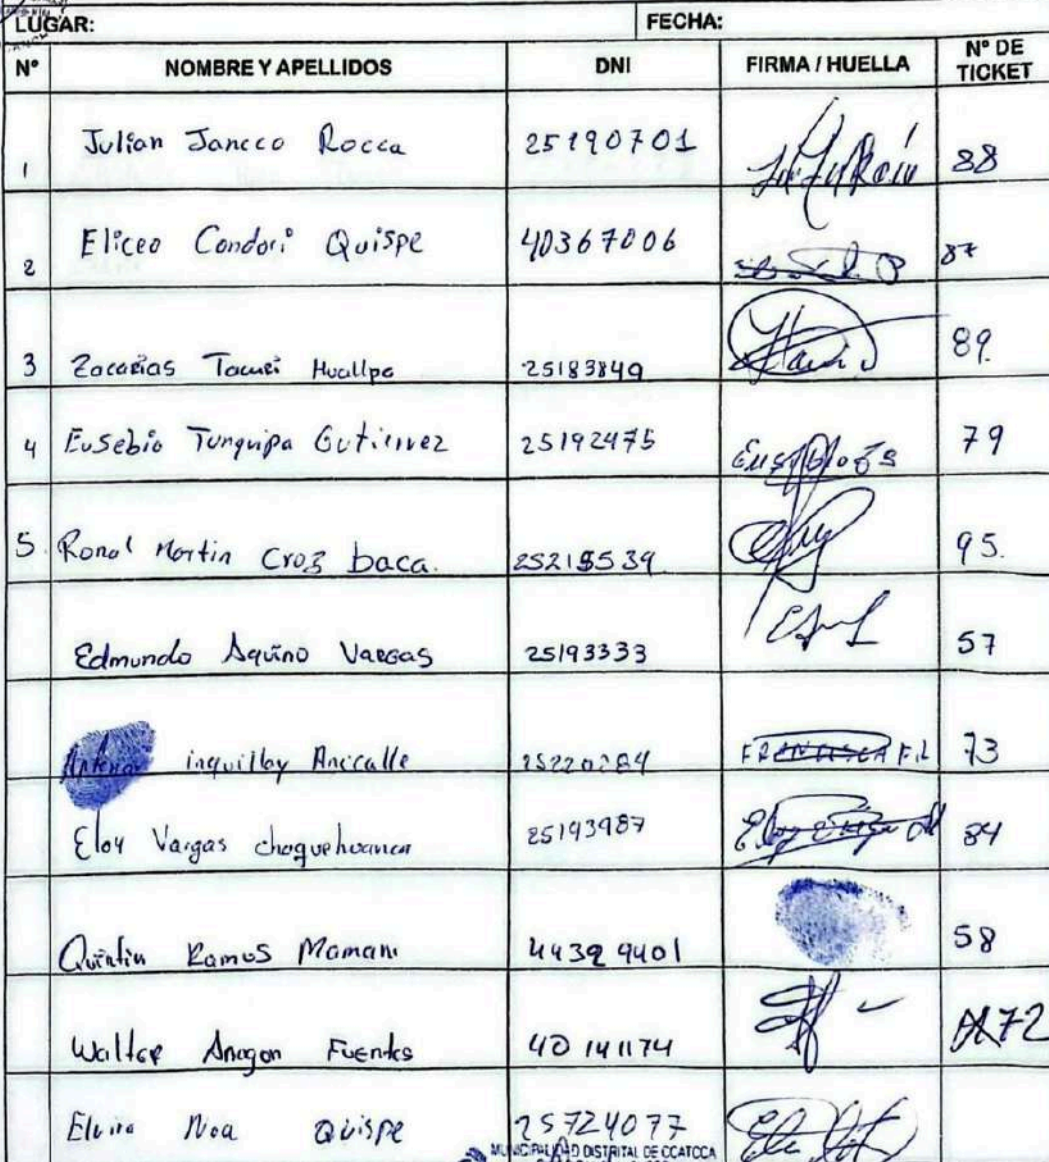 LUGAR: FECHA:
N° NOMBRE Y APELLIDOS DNI FIRMA / HUELLA N° DE TICKET
1 Julian Jancco Rocca 25190701 88
2 Eliceo Condori Quispe 40367006 87
3 Zacarias Tacuri Huallpa 25183849 89.
4 Eusebio Turquipa Gutierrez 25192475 79
5. Ronal Martin Croz baca. 95.
Edmundo Aquino Vargas 25193333 57
inquillay Anccalle FRANCISCA F.L 73
Eloy Vargas choquehuanca 25193987 84
Quintin Ramos Mamani 58
Walter Aragon Fuentes 40141174 72
Elvira Noa Quispe 25724077
MUNICIPALIDAD DISTRITAL DE CCATCCA